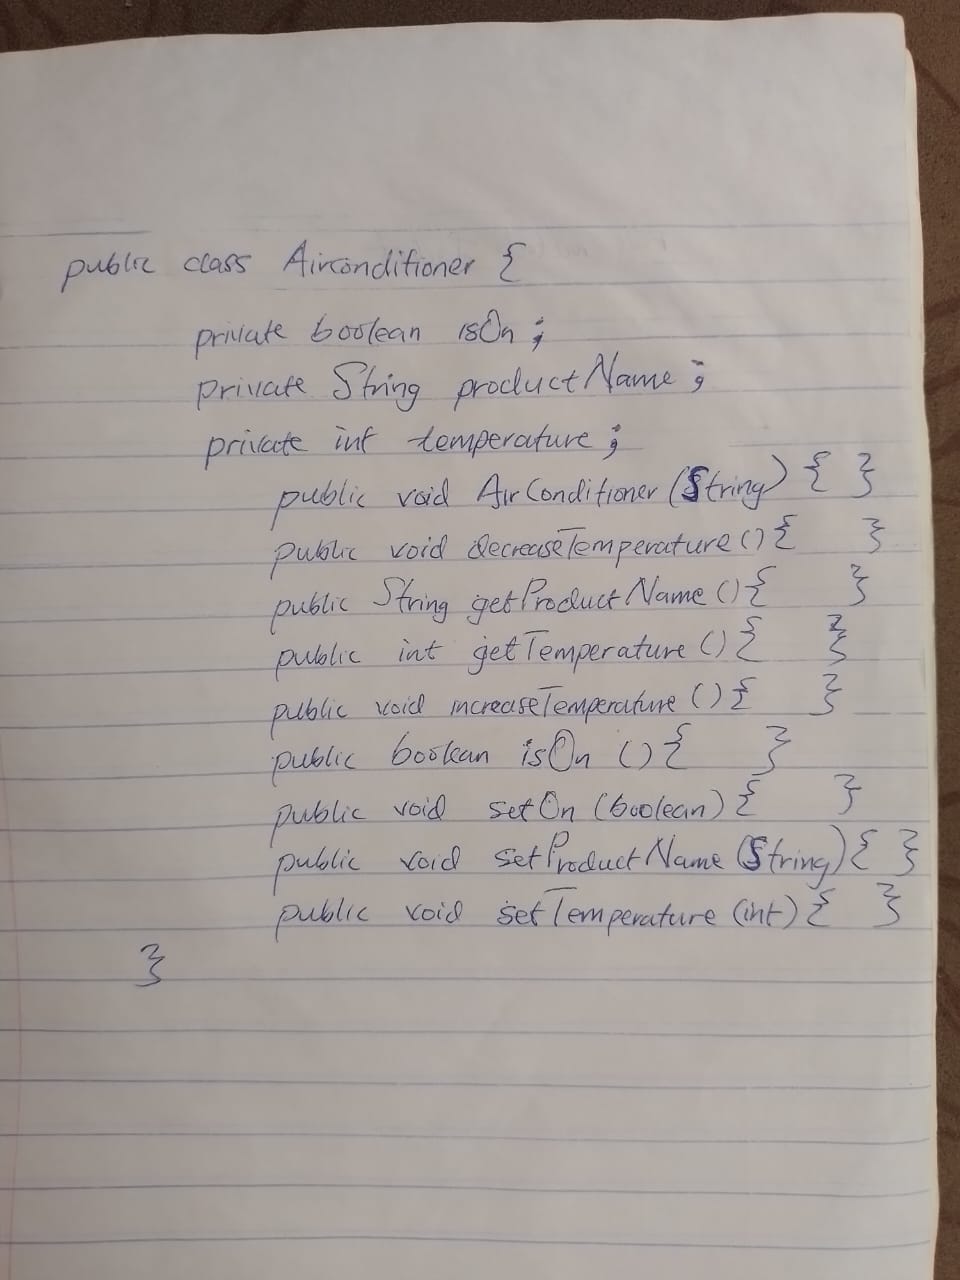 public class Airconditioner {
private boolean isOn ;
private String productName ;
private int temperature ;
public void AirConditioner (String) { }
public void decreaseTemperature () { }
public String getProductName () { }
public int getTemperature () { }
public void increaseTemperature () { }
public boolean isOn () { }
public void setOn (boolean) { }
public void setProductName (String) { }
public void setTemperature (int) { }
}